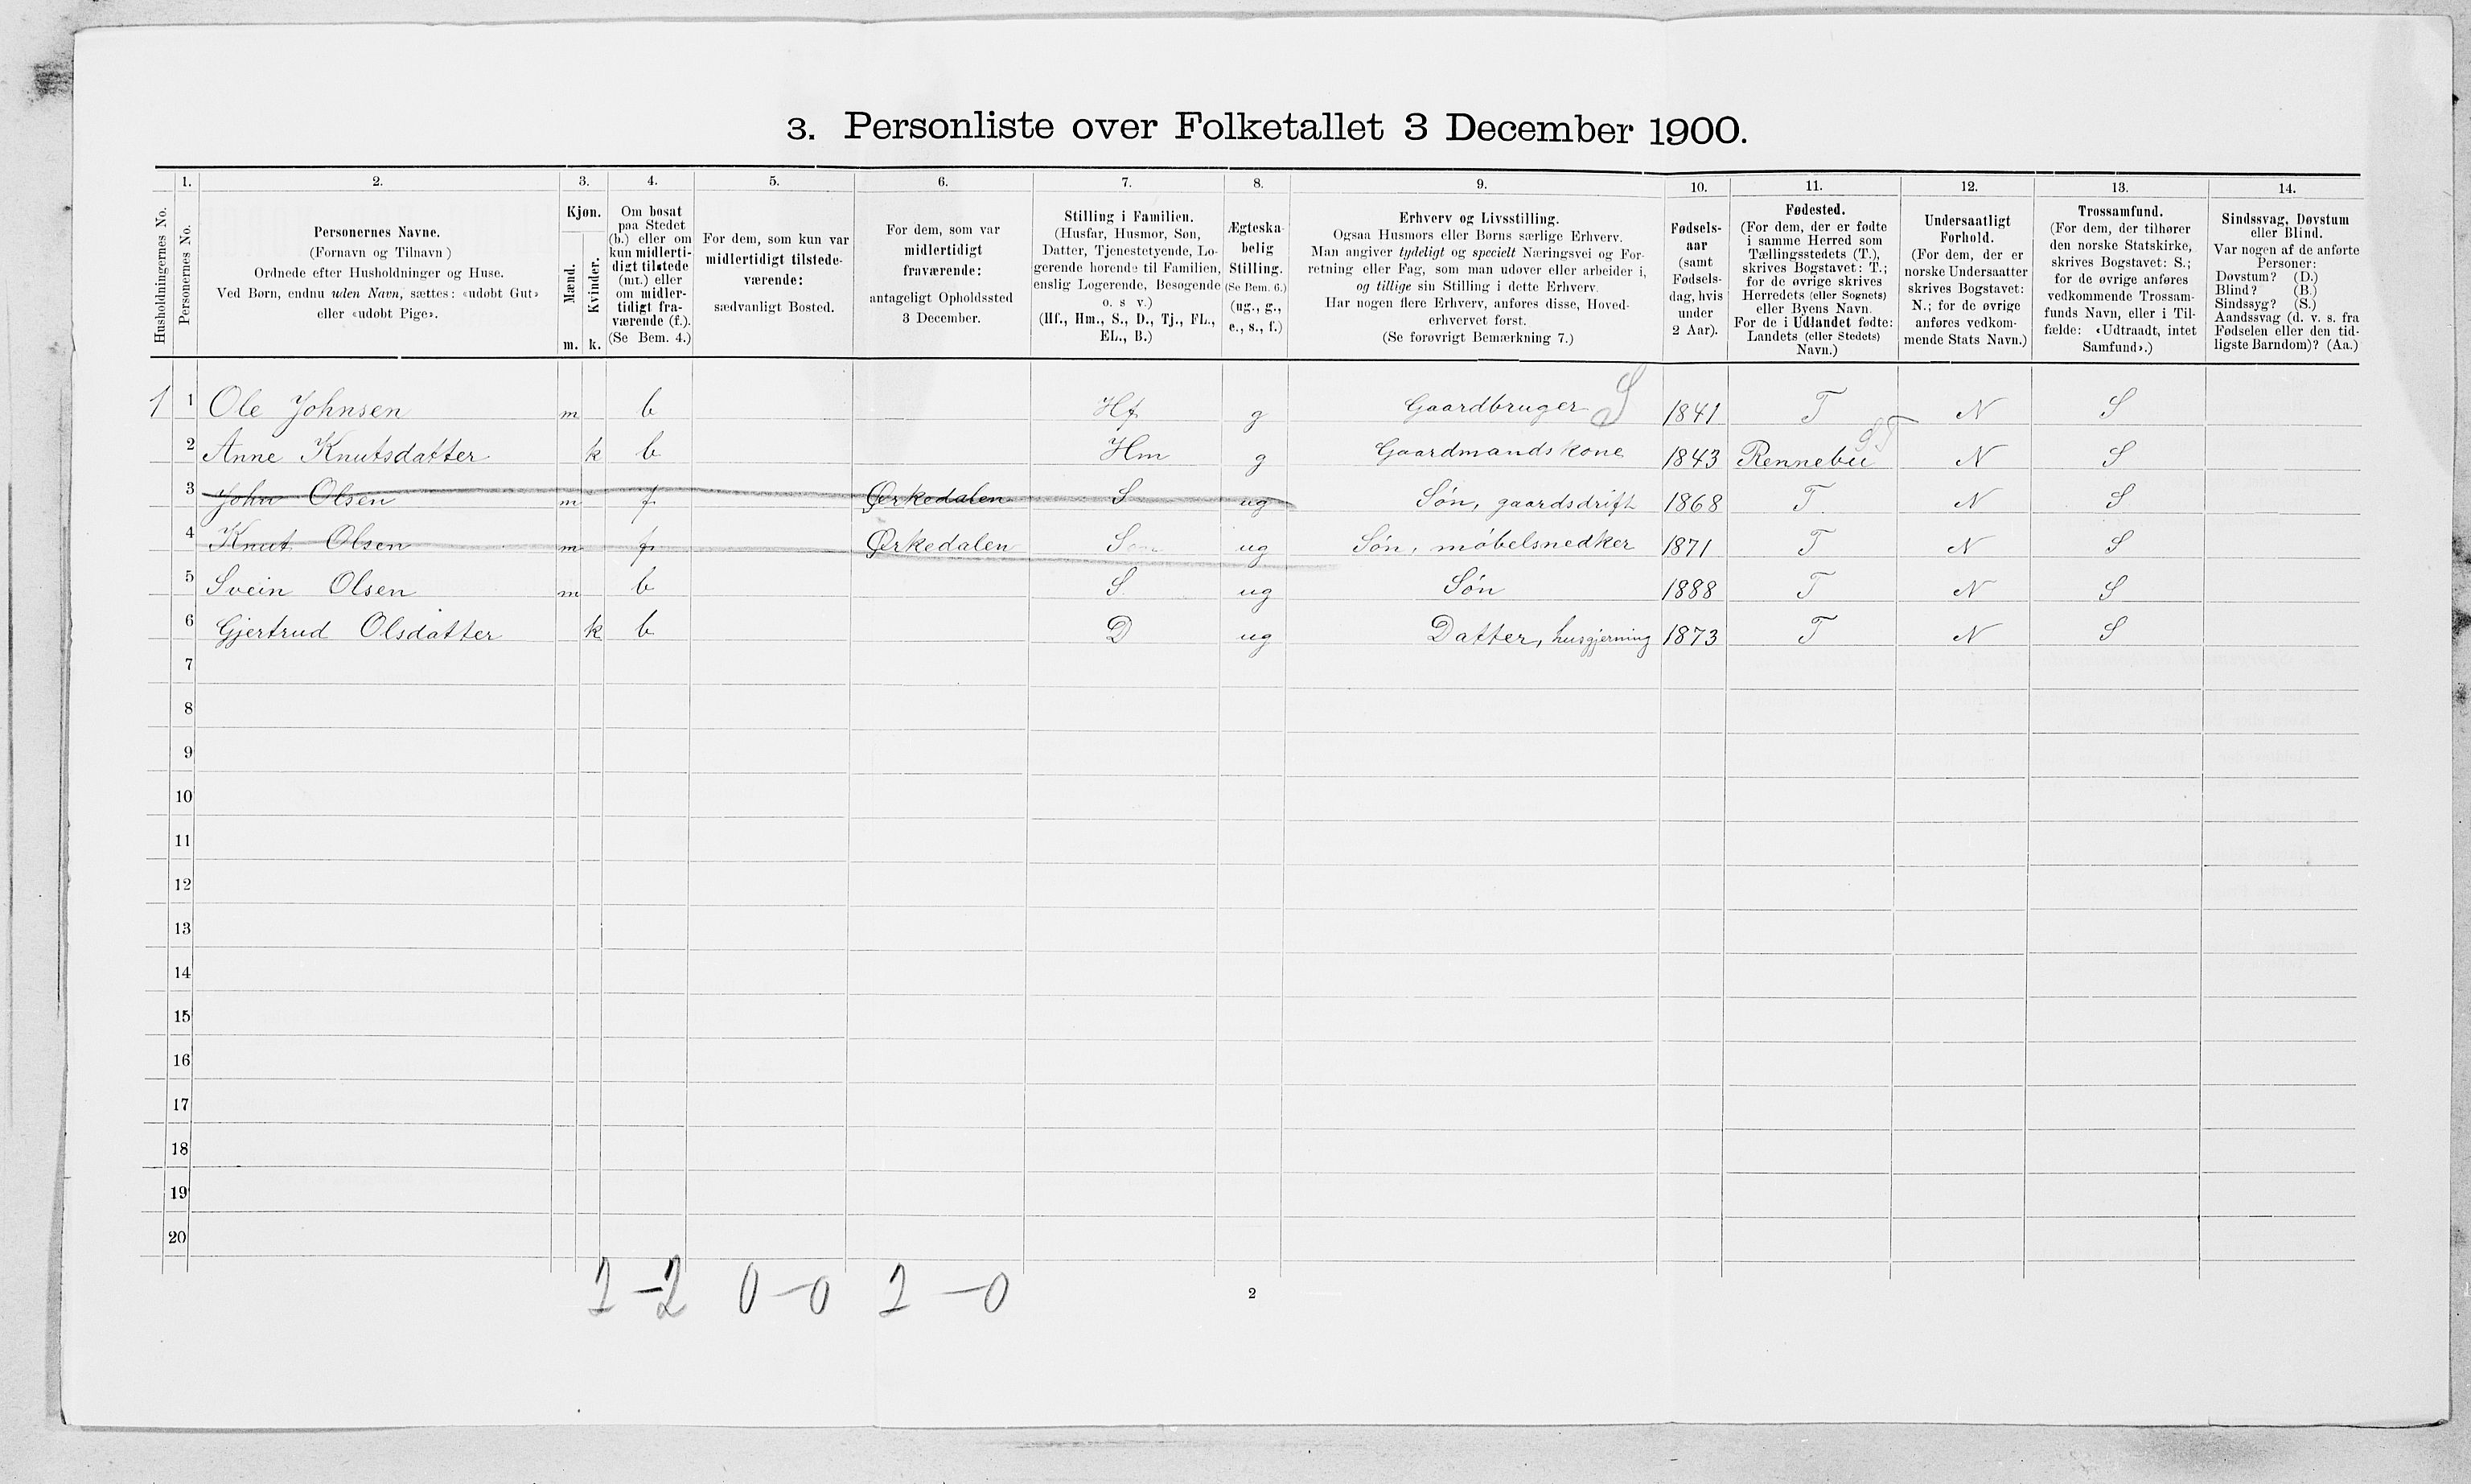 3. Personliste over Folketallet 3 December 1900.
Husholdningernes No.
1.
Personernes No.
2.
Personernes Navne.
(Fornavn og Tilnavn)
Ordnede efter Husholdninger og Huse.
Ved Børn, endnu uden Navn, sættes: «udøbt Gut»
eller «udøbt Pige».
3.
Kjøn.
Mænd.
Kvinder.
m. k.
4.
Om bosat
paa Stedet
(b.) eller om
kun midlerti-
digt tilstede
(mt.) eller
om midler-
tidigt fra-
værende (f.).
(Se Bem. 4.)
5.
For dem, som kun var
midlertidigt tilstede-
værende:
sædvanligt Bosted.
6.
For dem, som var
midlertidigt
fraværende:
antageligt Opholdssted
3 December.
7.
Stilling i Familien.
(Husfar, Husmor, Søn,
Datter, Tjenestetyende, Lo-
gerende hørende til Familien,
enslig Logerende, Besøgende
o. s v.)
(Hf., Hm., S., D., Tj., FL.,
EL., B.)
8.
Ægteska-
belig
Stilling.
(Se Bem. 6.)
(ug., g.,
e., s., f.)
9.
Erhverv og Livsstilling.
Ogsaa Husmors eller Børns særlige Erhverv.
Man angiver tydeligt og specielt Næringsvei og For-
retning eller Fag, som man udøver eller arbeider i,
og tillige sin Stilling i dette Erhverv.
Har nogen flere Erhverv, anføres disse, Hoved-
erhvervet først.
(Se forøvrigt Bemærkning 7.)
10.
Fødsels-
aar
(samt
Fødsels-
dag, hvis
under
2 Aar).
11.
Fødested.
(For dem, der er fødte
i samme Herred som
Tællingsstedets (T.),
skrives Bogstavet: T.;
for de øvrige skrives
Herredets (eller Sognets)
eller Byens Navn.
For de i Udlandet fødte:
Landets (eller Stedets)
Navn.)
12.
Undersaatligt
Forhold.
(For dem, der er
norske Undersaatter
skrives Bogstavet:
N.; for de øvrige
anføres vedkom-
mende Stats Navn.)
13.
Trossamfund.
(For dem, der tilhører
den norske Statskirke,
skrives Bogstavet: S.;
for de øvrige anføres
vedkommende Trossam-
funds Navn, eller i Til-
fælde: «Udtraadt, intet
Samfund».)
14.
Sindssvag, Døvstum
eller Blind.
Var nogen af de anførte
Personer:
Døvstum? (D.)
Blind? (B.)
Sindssyg? (S.)
Aandssvag (d. v. s. fra
Fødselen eller den tid-
ligste Barndom)? (Aa.)
1 1 Ole Johnsen m b Hf g Gaardbruger S 1841 T N S
2 Anne Knutsdatter k b Hm g Gaardmandskone 1843 Rennebu ST N S
3 John Olsen m f Ørkedalen S ug Søn, gaardsdrift 1868 T. N S
4 Knut Olsen m f Ørkedalen S ug Søn, møbelsnedker 1871 T N S
5 Svein Olsen m b S ug Søn 1888 T N S
6 Gjertrud Olsdatter k b D ug Datter, husgjerning 1873 T N S
7
8
9
10
11
12
13
14
15
16
17
18
19
20
2 - 2 0 - 0 2 - 0
2